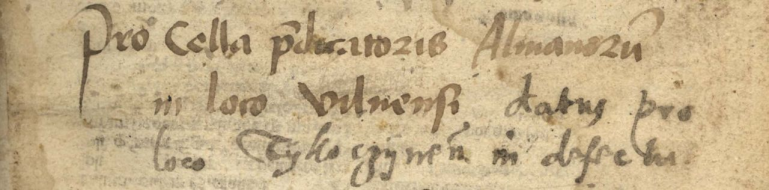 Pro Cella p̄dicatoris Almanorū
in loco vilnensi datus pro
loco Tykoczynen̄ in defectu